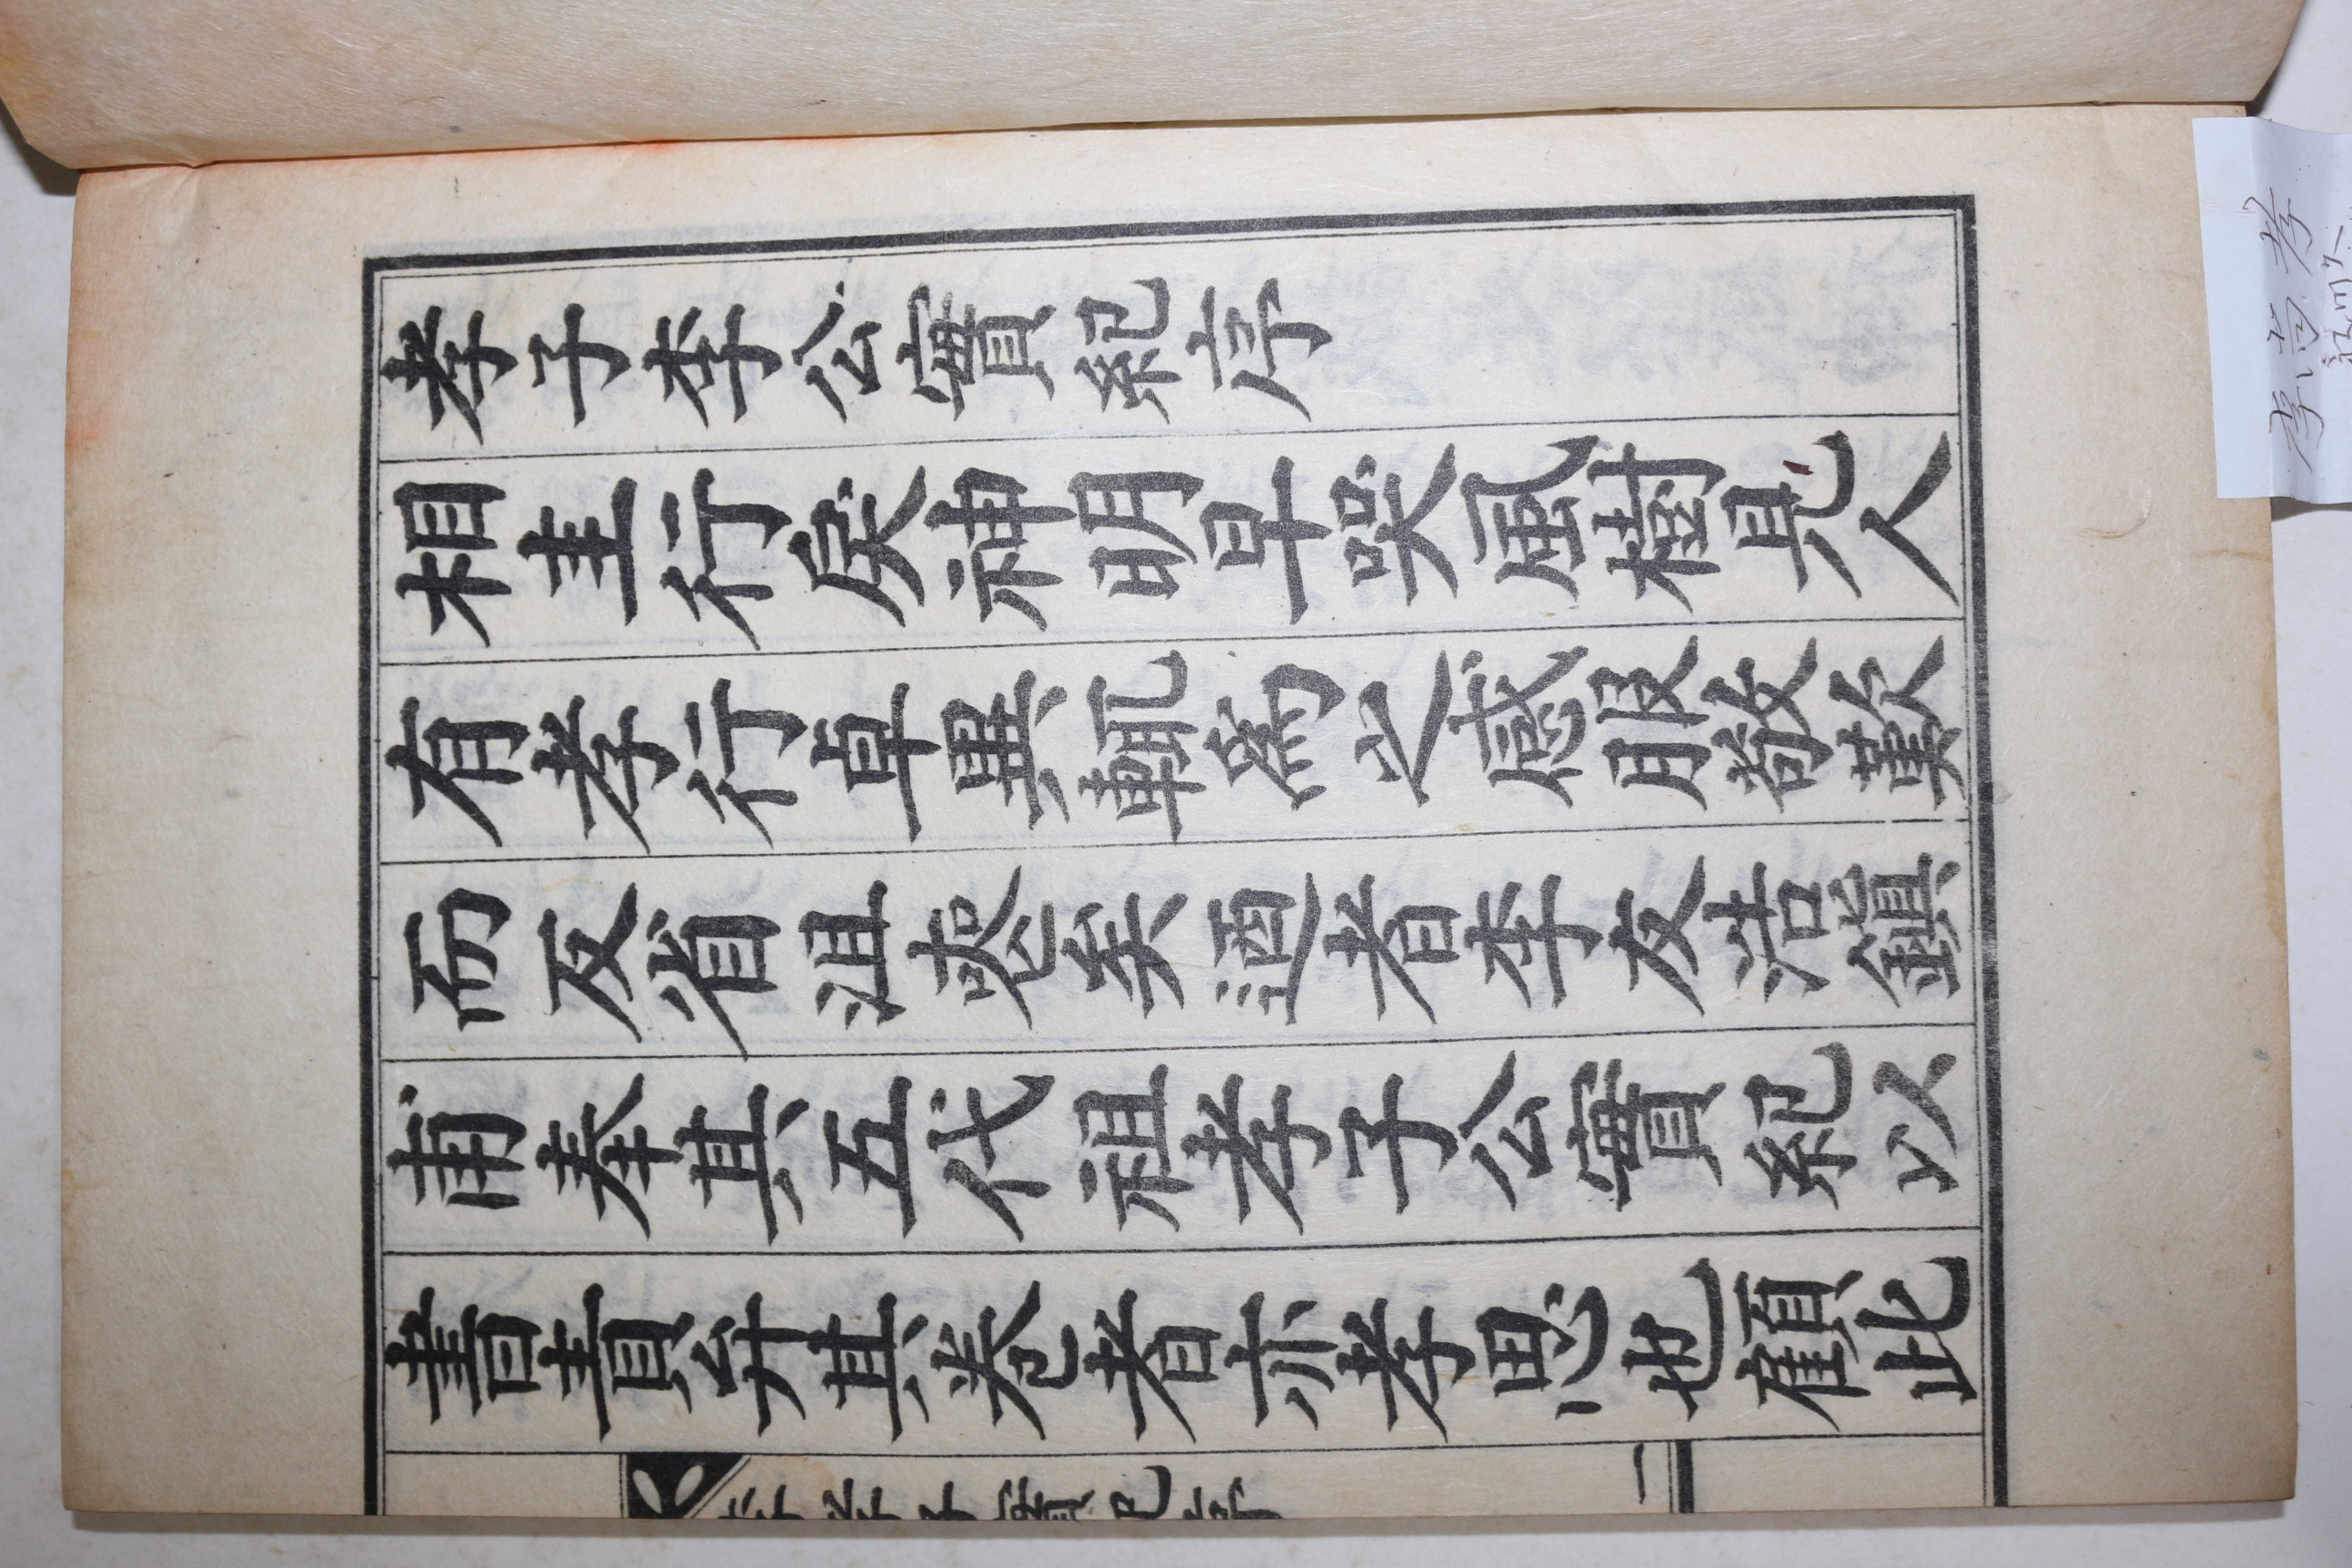 孝子李公實紀序
相圭行戾神明早哭風樹見人
有孝行卓異輒爲之感服敬歎
而反省沮喪矣迺者李友浩鎭
甫奉其五代祖孝子公實紀以
書責弁其卷者亦孝思也顧此
李孝子實紀序 一
李尚孝